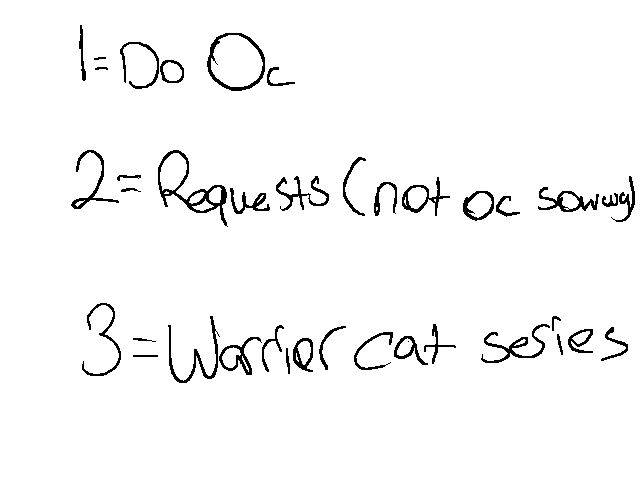 1=Do Oc
2=Requests (not oc sorry)
3=Warrior cat series